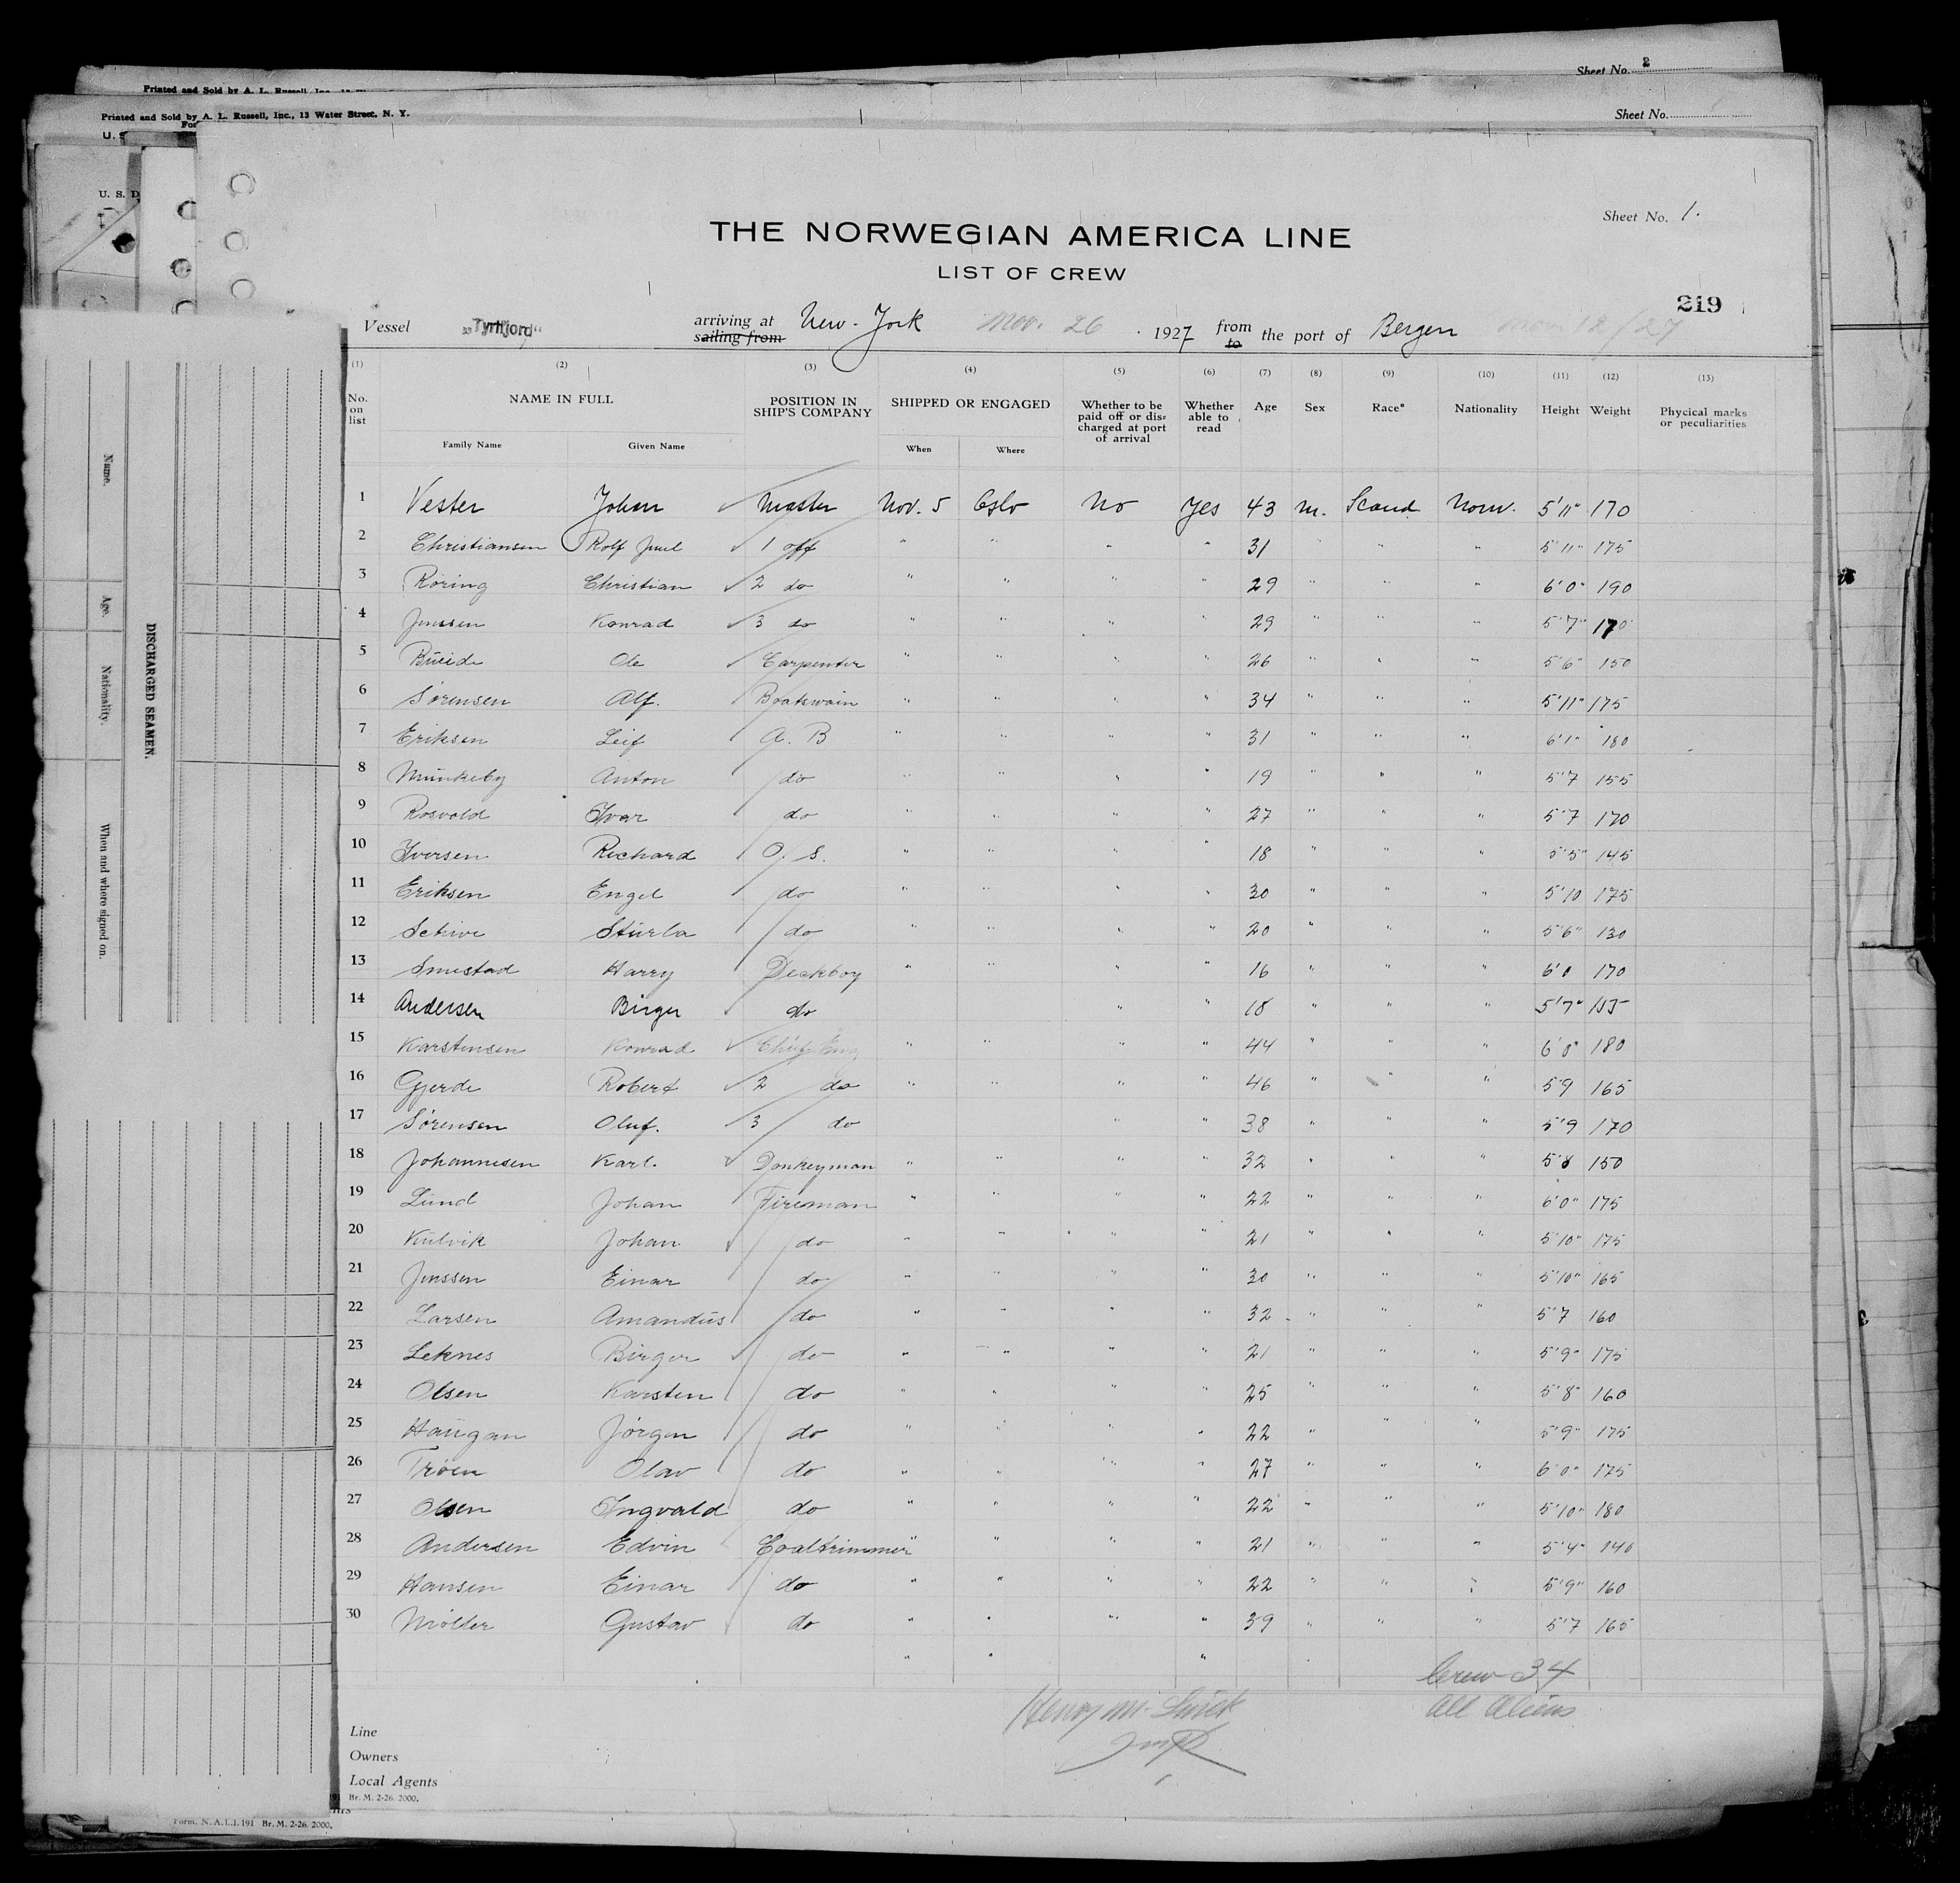 Sheet No. 2
Printed and Sold by A. L. Russell, Inc.,
Printed and Sold by A. L. Russell, Inc., 13 Water Street, N. Y.
Sheet No.
U. S. D
Sheet No. 1.
THE NORWEGIAN AMERICA LINE
LIST OF CREW
219
Vessel "Tyrifjord" arriving at New-York Nov. 26 . 1927 from the port of Bergen Nov 12/27
sailing from to
(1) (2) (3) (4) (5) (6) (7) (8) (9) (10) (11) (12) (13)
No. on list NAME IN FULL POSITION IN SHIP'S COMPANY SHIPPED OR ENGAGED Whether to be paid off or discharged at port of arrival Whether able to read Age Sex Race* Nationality Height Weight Phycical marks or peculiarities
Family Name Given Name When Where
1 Vester Johan Master Nov. 5 Oslo No Yes 43 m. Scand. Norw. 5'11" 170
2 Christiansen Rolf Juul 1 off " " " " 31 " " " 5'11" 175
3 Roring Christian 2 do " " " " 29 " " " 6'0" 190
4 Jenssen Konrad 3 do " " " " 29 " " " 5'7" 170
5 Bueide Ole Carpenter " " " " 26 " " " 5'6" 150
6 Sørensen Alf. Boatswain " " " " 34 " " " 5'11" 175
7 Eriksen Leif A. B " " " " 31 " " " 6'1" 180
8 Munkeby Anton do " " " " 19 " " " 5'7 155
9 Rosvold Ivar do " " " " 27 " " " 5'7 170
10 Iversen Richard O. S. " " " " 18 " " " 5'5" 145
11 Eriksen Engel do " " " " 30 " " " 5'10 175
12 Schive Sturla do " " " " 20 " " " 5'6" 130
13 Smestad Harry Deckboy " " " " 16 " " " 6'0 170
14 Andersen Birger do " " 18 " " " 5'7" 155
15 Karstensen Konrad Chief Eng " " " " 44 " " " 6'0" 180
16 Gjerde Robert 2 do " " " " 46 " " " 5'9 165
17 Sørensen Oluf. 3 do " " 38 " " " 5'9 170
18 Johannesen Karl. Donkeyman " " " " 32 " " " 5'8 150
19 Lund Johan Fireman " " " " 22 " " " 6'0" 175
20 Kulvik Johan do " " " " 21 " " " 5'10" 175
21 Jenssen Einar do " " " " 30 " " " 5'10" 165
22 Larsen Amandus do " " " " 32 " " " 5'7 160
23 Leknes Birger do " " " " 21 " " " 5'9" 175
24 Olsen Karsten do " " " " 25 " " " 5'8" 160
25 Haugan Jørgen do " " " " 22 " " " 5'9" 175
26 Trøen Olav do " " " " 27 " " " 6'0" 175
27 Olsen Ingvald do " " " " 22 " " " 5'10" 180
28 Andersen Edvin Coaltrimmer " " " " 21 " " " 5'4" 140
29 Hansen Einar do " " " " 22 " " " 5'9" 160
30 Møller Gustav do " " " " 39 " " " 5'7 165
" " "
Crew 34
All Aliens
Henry M.
Line
Owners
Local Agents
Br. M. 2-26. 2000.
Form. N. A. L. I. 191 Br. M. 2-26. 2000.
DISCHARGED SEAMEN.
Name.
Age.
Nationality.
When and where signed on.